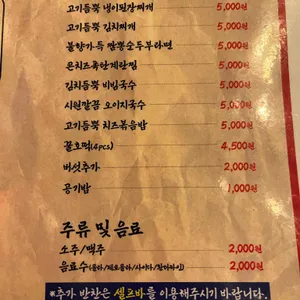 고기듬뿍 냉이된장찌개 5,000원
고기듬뿍 김치찌개 5,000원
불향가득 짬뽕순두부라면 5,000원
콘치즈폭탄계란찜 5,000원
김치듬뿍 비빔국수 5,000원
시원말끔 오이지국수 5,000원
고기듬뿍 치즈볶음밥 5,000원
꿀호떡(4pcs) 4,500원
버섯추가 2,000원
공기밥 1,000원
주류 및 음료
소주/맥주 2,000원
음료수(콜라/제로콜라/사이다/환타파인) 2,000원
*추가 반찬은 셀프바를 이용해주시기 바랍니다.